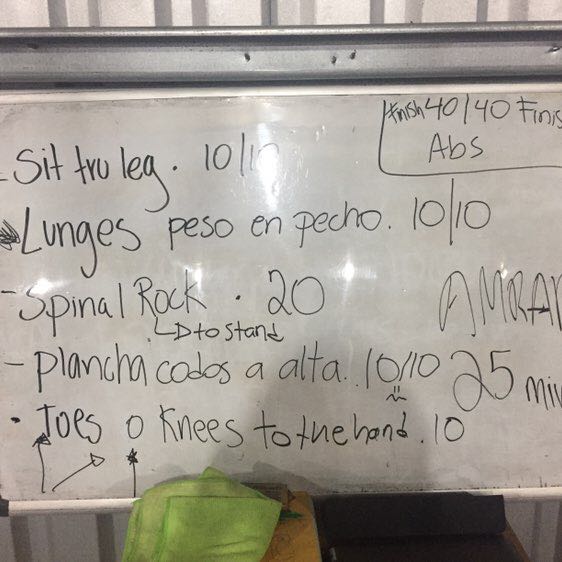 Finish 40/40 Finis
Abs
- Sit tru leg. 10/10
Lunges peso en pecho. 10/10
- Spinal Rock . 20
to stand
AMRAP
- Plancha codos a alta.. 10/10
25 min
. Toes o Knees to the hand. 10